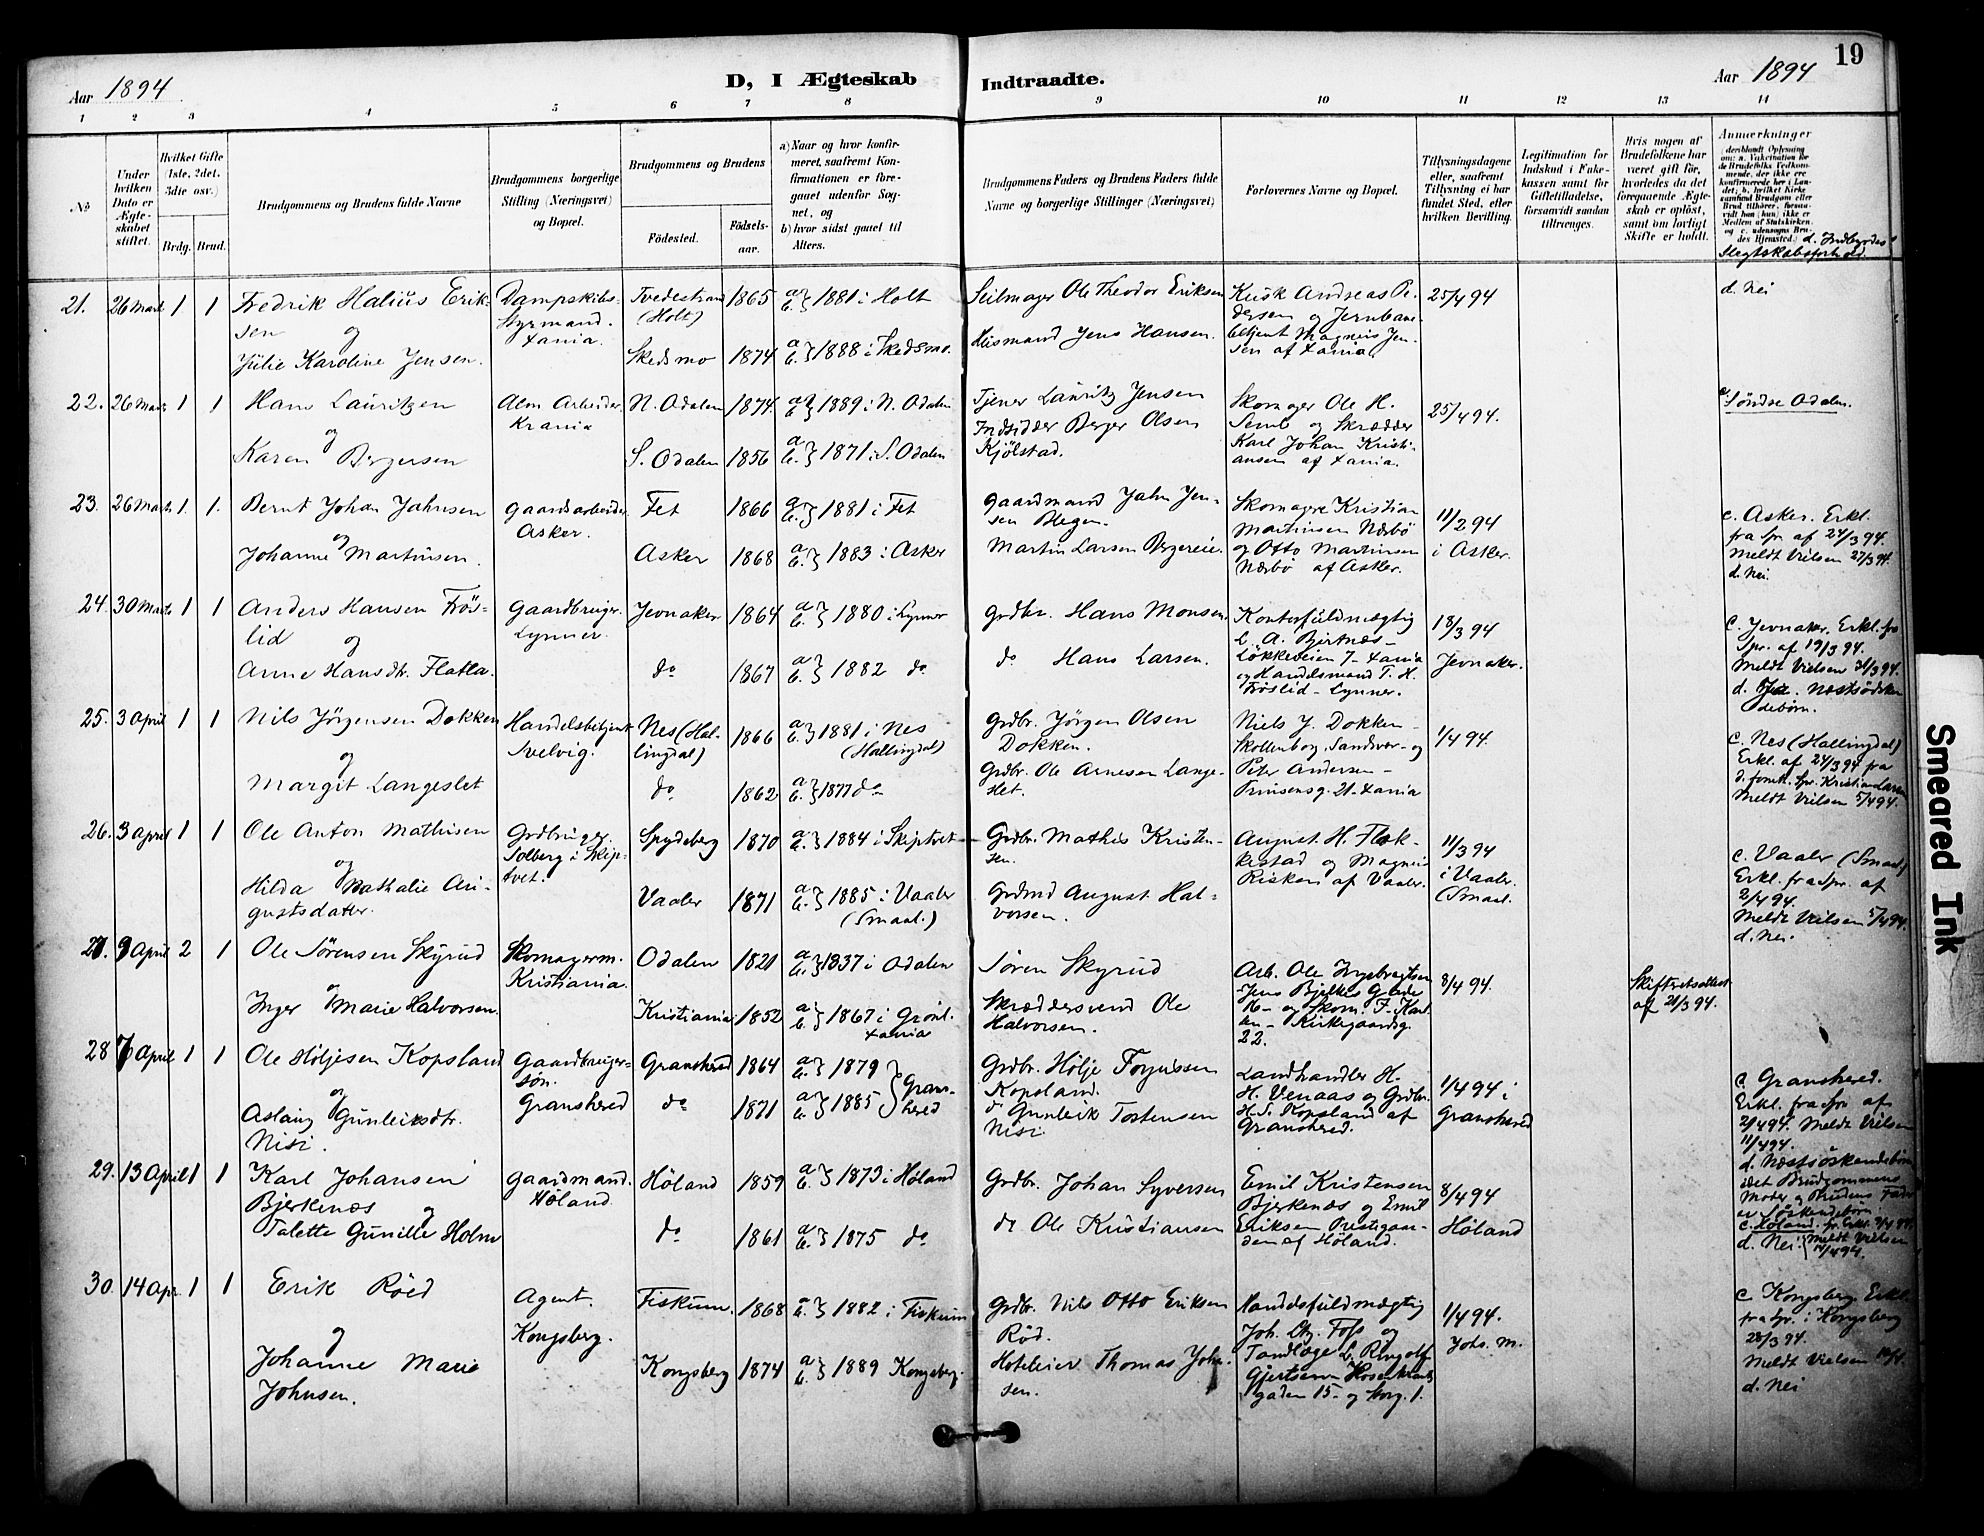 19
Aar 1894
D, I Ægteskab Indtraadte.
Aar 1894
1 2 3 4 5 6 7 8 9 10 11 12 13 14
No
Under hvilken Dato er Ægteskabet stiftet.
Hvilket Gifte (1ste, 2det, 3die osv.)
Brdg. Brud.
Brudgommens og Brudens fulde Navne
Brudgommens borgerlige Stilling (Næringsvei) og Bopæl.
Brudgommens og Brudens
Fødested.
Fødselsaar.
a) Naar og hvor konfirmeret, saafremt Konfirmationen er foregaaet udenfor Sognet, og
b) hvor sidst gaaet til Alters.
Brudgommens Faders og Brudens Faders fulde Navne og borgerlige Stillinger (Næringsvei)
Forlovernes Navne og Bopæl.
Tillysningsdagene eller, saafremt Tillysning ei har fundet Sted, efter hvilken Bevilling.
Legitimation for Indskud i Enkekassen samt for Giftetilladelse, forsaavidt saadan tiltrænges.
Hvis nogen af Brudefolkene har været gift før, hvorledes da det foregaaende Ægteskab er opløst, samt om lovligt Skifte er holdt.
Anmerkninger (deriblandt Oplysning om: a. Vaksination for de Brudefolks Vedkommende, der ikke ere konfirmerede her i Landet; b. hvilket Kirkesamfund Brudgom eller Brud tilhører, forsaavidt han (hun) ikke er Medlem af Statskirken og c. udensogns Brudes Hjemsted.) d. Indbyrdes Slegtskabsforhold.
21. 26 Marts 1 1
Fredrik Halius Eriksen
og
Julie Karoline Jensen.
Dampskibsstyrmand.
Xania.
Tvedestrand (Holt) 1865 a b. } 1881 i Holt
Skedsmo 1874 a b. } 1888 i Skedsmo.
Seilmager Ole Theodor Eriksen
Huusmand Jens Hansen.
Kusk Andreas Pedersen og Jernbanebetjent Magnus Jensen af Xania.
25/4 94
d. Nei
22. 26 Marts 1 1
Hans Lauritzen
og
Karen Bergersen
Alm Arbeider.
Krania
N. Odalen 1874. a b } 1889 i N. Odalen
S. Odalen 1856 a b. } 1871 i S. Odalen
Tjener Lauritz Jensen
Indsidder Berger Olsen Kjölstad.
Skomager Ole H. Semb og Skrædder Karl Johan Kristiansen af Xania.
25/4 94.
c. Søndre Odalen.
23. 26 Marts 1. 1.
Bernt Johan Jahnsen
og
Johanne Martinsen.
Gaardsarbeider
Asker.
Fet 1866 a b. } 1881 i Fet
Asker 1868 a b. } 1883 i Asker
Gaardmand Jahn Jensen Hegen.
Martin Larsen Bergereie.
Skomagere Kristian Martinsen Nærbö og Otto Martinsen Nærbö af Asker.
11/2 94 i Asker.
c. Asker. Erkl. fra Spr. af 24/3 94.
Meldt Vielsen 27/3 94.
d. Nei.
24. 30 Marts 1 1
Anders Hansen Fröslid
og
Anne Hansdtr. Flatla.
Gaardbruger.
Lynner.
Jevnaker 1864 a b. } 1880 i Lynner
do 1867 a b. } 1882 do
Grdbr. Hans Monsen.
do Hans Larsen.
Kontorfuldmægtig L. A. Bjertnæs - Lökkeveien 7 - Xania og Handelsmand T. H. Fröslid - Lynner.
18/3 94 Jevnaker.
c. Jevnaker. Erkl. fra Spr. af 19/3 94.
Meldt Vielsen 31/3 94.
d. Ja. Næstsødskendebørn.
25. 3 April 1 1
Nils Jörgensen Dokken
og
Margit Langeslet
Handelsbetjent
Svelvig.
Nes (Hallingdal) 1866 a b. } 1881 i Nes (Hallingdal)
do 1862 a b. } 1877 do
Grdbr. Jörgen Olsen Dokken.
Grdbr. Ole Arnesen Langeslet.
Niels J. Dokken - Skollenborg, Sandsvær - og Peter Andersen - Prinsensg. 21 - Xania
1/4 94.
c. Nes (Hallingdal)
Erkl. af 24/3 94 fra d. fomh. Spr. Kristian Larsen
Meldt Vielsen 5/4 94.
26. 3 April 1 1
Ole Anton Mathisen
og
Hilda Nathalie Augustsdatter.
Grdbruger
Solberg i Skiptvet.
Spydeberg 1870 a b. } 1884 i Skiptvet
Vaaler 1871 a b. } 1885 i Vaaler (Smaal.)
Grdbr. Mathis Kristensen.
Grdmd August Halvorsen.
August H. Flekkestad og Magnus Risken af Vaaler.
11/3 94 i Vaaler. (Smaal.
c. Vaaler (Smaal)
Erkl. fra Spr. af 2/4 94.
Meldt Vielsen 5/4 94.
d. Nei.
27. 9 April 2 1
Ole Sørensen Skyrud
og
Inger Marie Halvorsen.
Skomagerm.
Kristiania.
Odalen 1821 a b. } 1837 i Odalen
Kristiania 1852 a b } 1867 i Grønl. Xania
Søren Skyrud
Skræddersvend Ole Halvorsen.
Arb. Ole Ingebregtsen Jens Bjelkes Gade 16 - og Skom. F. Karlsen - Kirkegaardsg. 22.
8/4 94.
Skifteretsattest af 21/3 94.
28 7 April 1 1
Ole Höljesen Kopsland
og
Aslaug Gunleiksdtr. Nisi.
Gaardbrugersøn.
Gransherred
Gransherred 1864 a b. } 1879
do 1871 a b. } 1885 } Gransherred
Grdbr. Hölje Torjussen Kopsland.
do Gunleik Tostensen Nisi.
Landhandler H. H. Venaas og Grdbr. H. S. Kopsland af Gransherred.
1/4 94 i Gransherred
c. Gransherred.
Erkl. fra Spr. af 2/4 94. Meldt Vielsen 11/4 94.
d. Næstsöskendebörn idet Brudgommens Moder og Brudens Fader er Söskendebörn.
29. 13 April 1 1
Karl Johansen Bjerkenæs og
Talette Gunille Holm
Gaardmand.
Höland.
Höland 1859 a b. } 1873 i Höland
do 1861 a b. } 1875 do
Grdbr. Johan Syversen
do Ole Kristiansen
Emil Kristensen Bjerkenæs og Emil Eriksen Prestegaarden af Höland.
8/4 94 Höland
c. Höland. fr. Erkl. 9/4 94.
d. Nei { Meldt Vielsen 14/4 94.
30. 14 Apr. 1 1
Erik Röed
og
Johanne Marie Johnsen.
Agent.
Kongsberg.
Fiskum. 1868 b. } 1882 i Fiskum
Kongsberg 1874 a b. } 1889 Kongsberg.
Grdbr. Nils Otto Eriksen Röd.
Hoteleier Thomas Johnsen.
Handelsfuldmægtig Joh. Chr. Foss og Tandlæge L. Ringolf Gjertsen Rosenkrantzgaden 15 - og Storg. 1.
1/4 94. Johs. M.
c. Kongsberg. Erkl. fra Spr. i Kongsberg 28/3 94.
Meldt Vielsen 16/4.
d. Nei
Smeared Ink